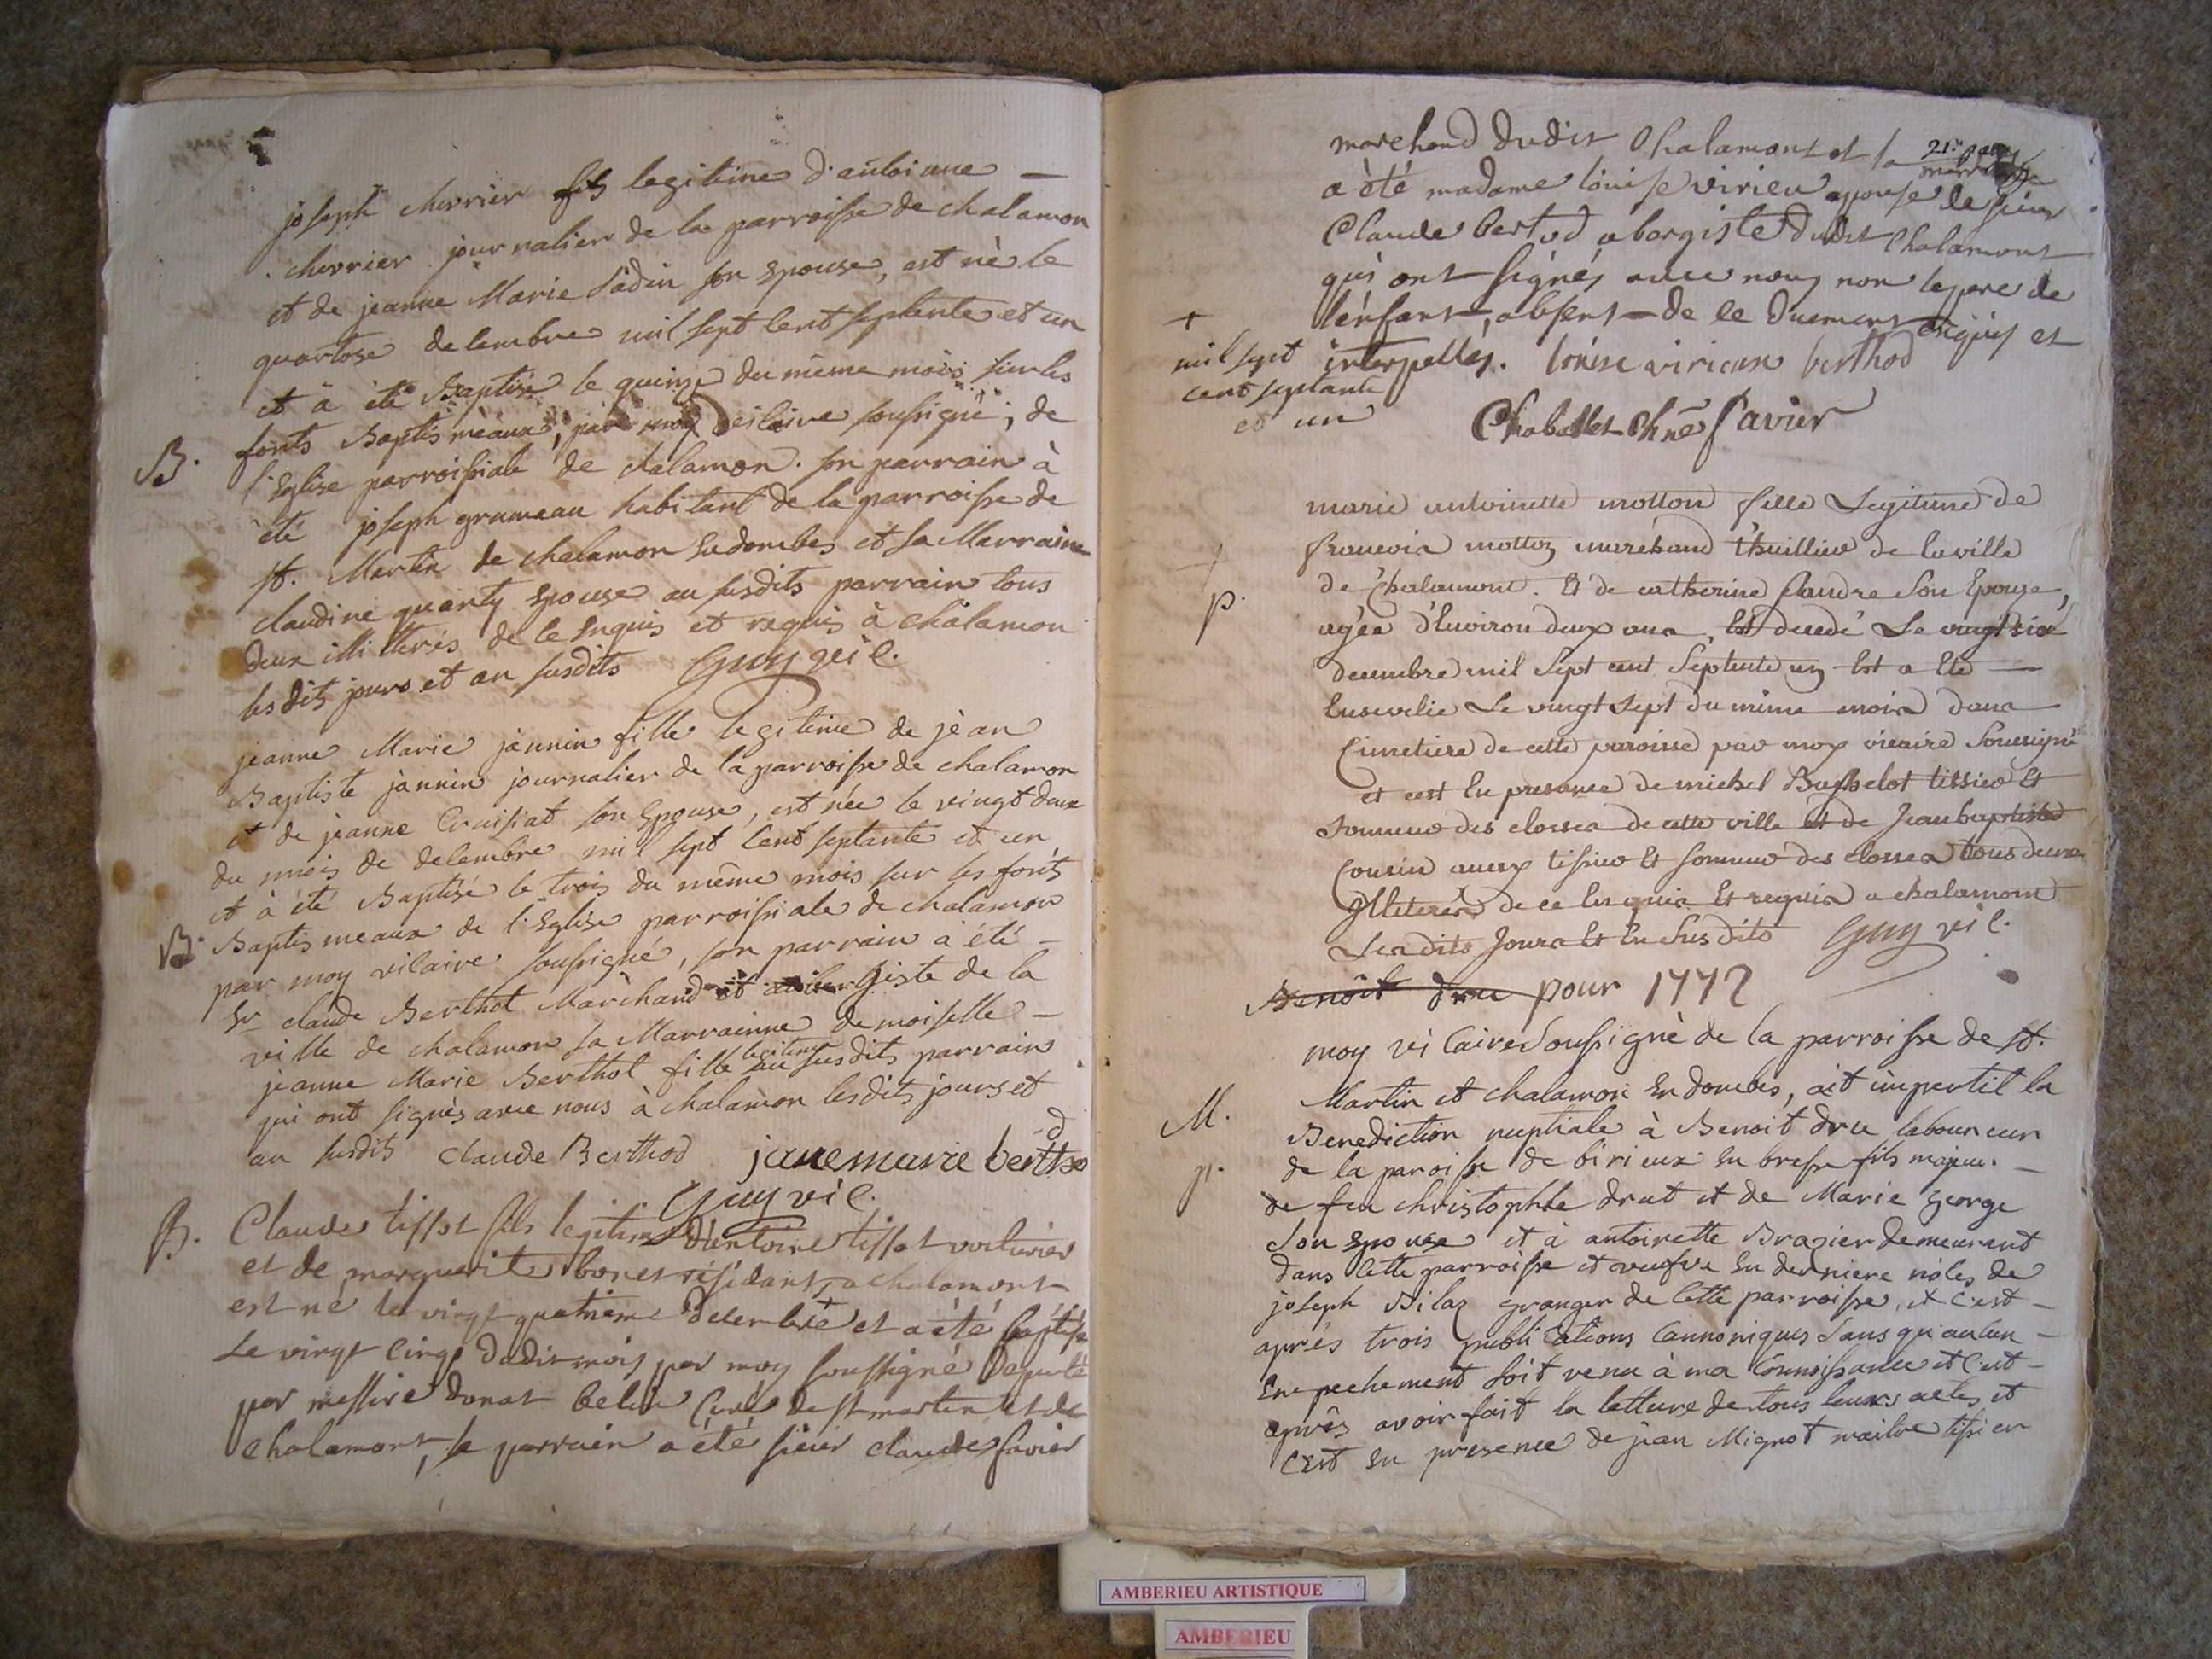 joseph chevrier fils legitime d'antoinne —
chevrier journalier de la parroisse de chalamon
et de jeanne Marie sadin son epouse, est nè le
quartose decembre mil sept cent septente et un
et à été Baptisé le quinze du même mois sur les
B. fonts Baptismeaux, par moy vicaire soussigné, de
l'Eglise parroissiale de chalamon. son parrain à
èté joseph grumeau habitant de la parroisse de
st. Martin de chalamon en dombes et sa Marraine
claudine quarty epouse au susdits parrain tous
deux illitterés de ce enquis et requis à chalamon
lesdits jours et an susdits Guy vic.
jeanne Marie jannin fille legitime de jèan
Baptiste jannin journalier de la parroisse de chalamon
et de jeanne Cruisiat son epouse, est née le vingt deux
du mois de decembre mil sept cent septante et un
et à été Baptisé le trois du même mois sur les fonts
B. Baptismeaux de l'Eglise parroissiale de chalamon
par moy vicaire soussigné, son parrain à été —
sr claude Berthot Marchand et aubergiste de la
ville de chalamon sa Marrainne demoiselle —
jeanne Marie Berthot fille legitime au susdits parrain
qui ont signès avec nous à chalamon lesdits jours et
an susdits claude Berthod jane marie berthod
Guy vic.
B. Claude tissot fils legitime d'antoine tissot voiturier
et de marguerite bonet résidants a chalamont
est né le vingt quatrieme decembre + et a été baptisé
Le vingt cinq dudit mois par moy soussigné deputé
par messire donat belin Curé de st martin et de
chalamont, le parrain a été sieur claude savier
21e
marchand dudit Chalamont et la marraine
a été madame loüise virieu epouse de sieur
Claude bertod obergiste dudit Chalamont
qui ont signés avec nous non le pere de
l'enfant, absent de ce duement enquis et
+ mil sept
cent septante
et un
interpellés. loüise virieux berthod
Chaballet Savier
marie antoinette motton fille Legitime de
francois motton marchand thuillier de la ville
de Chalamont. Et de catherine flandre son Epouze,
p. agée d'Environ deux ans, Est decedé Le vingt six
decembre mil Sept cent Septente un Est a Eté —
Ensevelie Le vingt sept du même mois dans
Cimetiere de cette paroisse par moy vicaire Soussigné
et cest En presence de michel Buphelot tissier Et
Sonneur des closses de cette ville et de Jean baptiste
Cousin aussy tissier Et sonneur des closses tous deux
Illiterés de ce Enquis Et requis a chalamont
Lesdits Jours Et En susdits Guy vic.
Benoit dru pour 1772
moy vicaire soussignè de la parroisse de st.
Martin et chalamon en dombes, ait impertit la
M. Benediction nuptiale à Benoit dru laboureur
de la paroisse de birieux en bresse fils majeur —
p. de feu christophle drut et de Marie george
son epouse et à antoinette Brazier demeurant
dans cette parroisse et veufve en derniere nôces de
joseph Bilaz granger de cette parroisse, et c'est —
après trois publications Cannoniques sans qu'aucun —
Empechement soit venu à ma Connoissance et c'est —
après avoir fait la letture de tous leurs actes et
c'est en presence de jean Mignot maitre tissier
AMBERIEU ARTISTIQUE
AMBERIEU